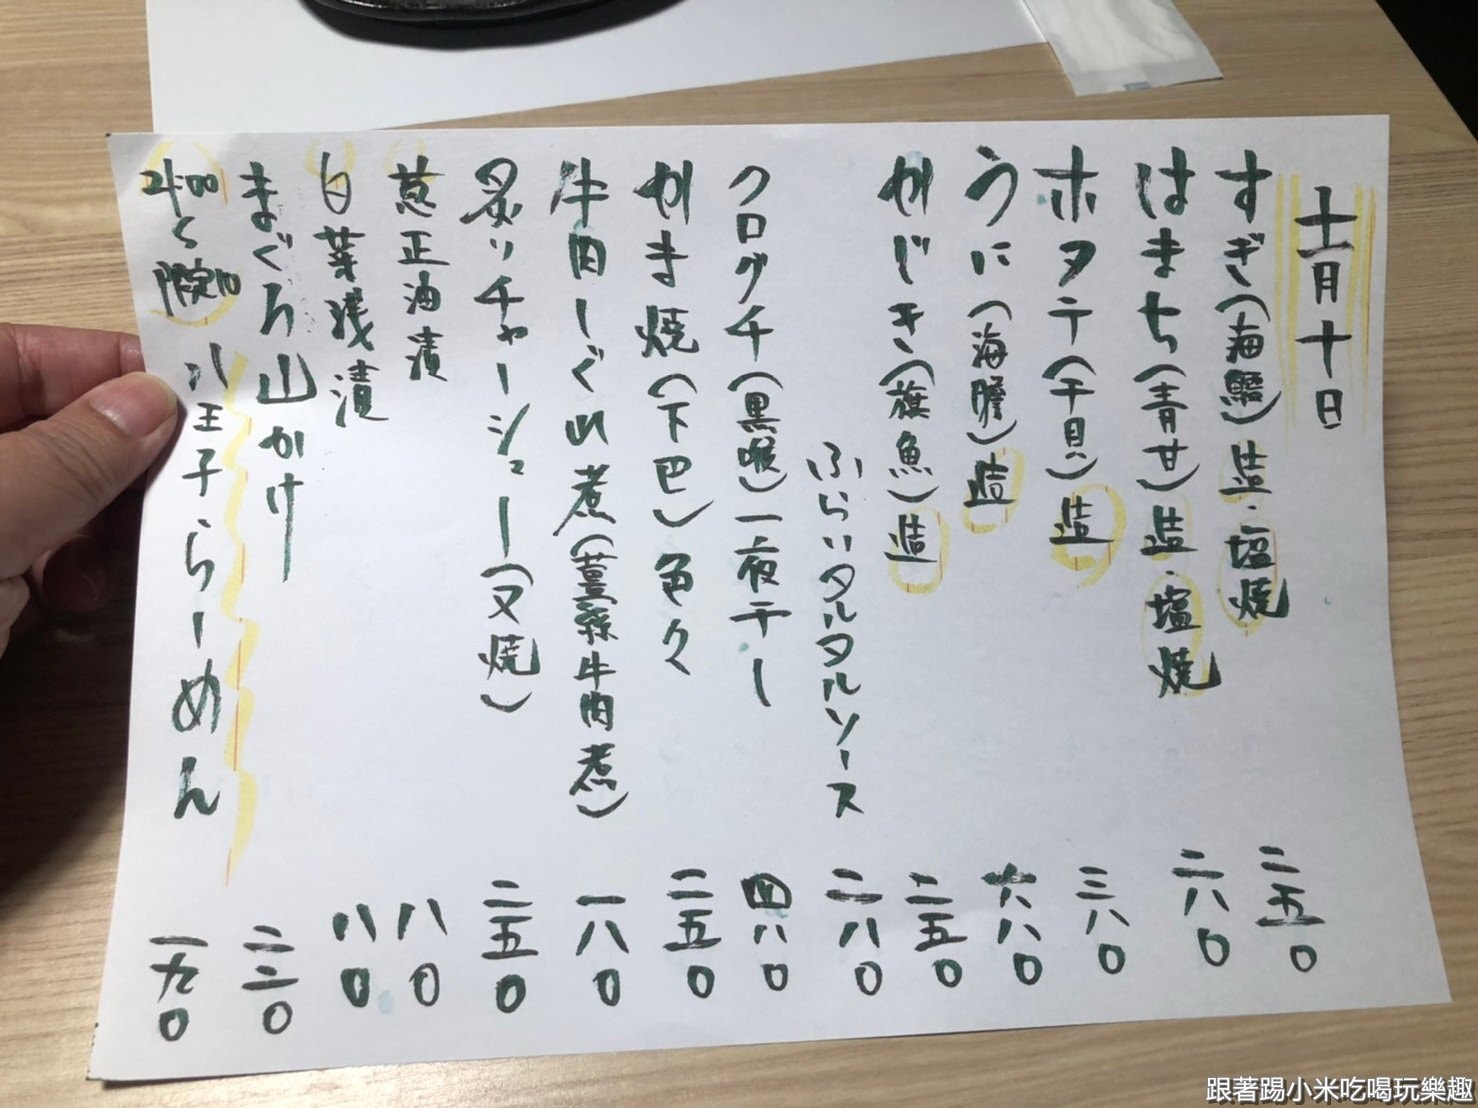 十一月十日
すぎ(海鱺)造・塩焼 二五〇
はまち(青甘)造・塩焼 二八〇
ホタテ(干貝)造 三八〇
うに(海膽)造 六八〇
かじき(旗魚)造 二五〇
ふらいタルタルソース 二八〇
クログチ(黒喉)一夜干し 四八〇
かま焼(下巴)色々 二五〇
牛肉しぐれ煮(薑絲牛肉煮) 一八〇
炙りチャーシュー(叉焼) 二五〇
葱正油漬 八〇
白菜浅漬 八〇
まぐろ山かけ 二二〇
24:00〜限定10 八王子らーめん 一九〇
跟著踢小米吃喝玩樂趣